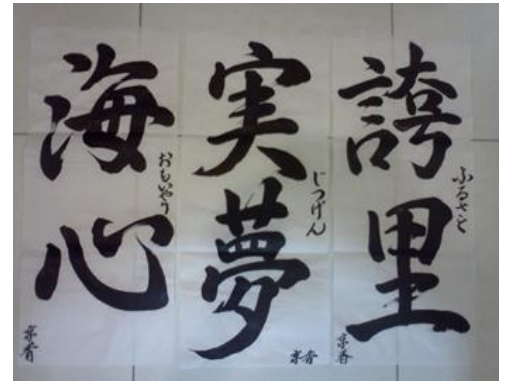 誇里
ふるさと
京香
実夢
じつげん
京香
海心
おもいやり
京香